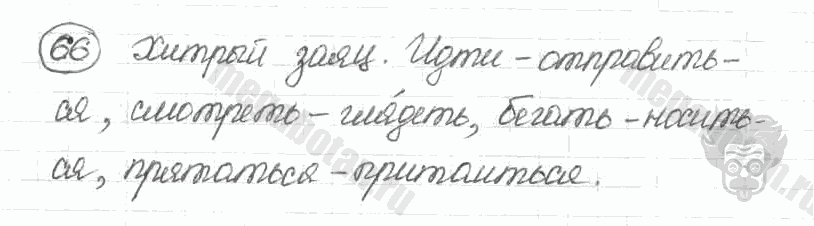 66 Хитрый заяц. Идти – отправить-
ся, смотреть – гля́деть, бегать – носить-
ся, прятаться – притаиться.